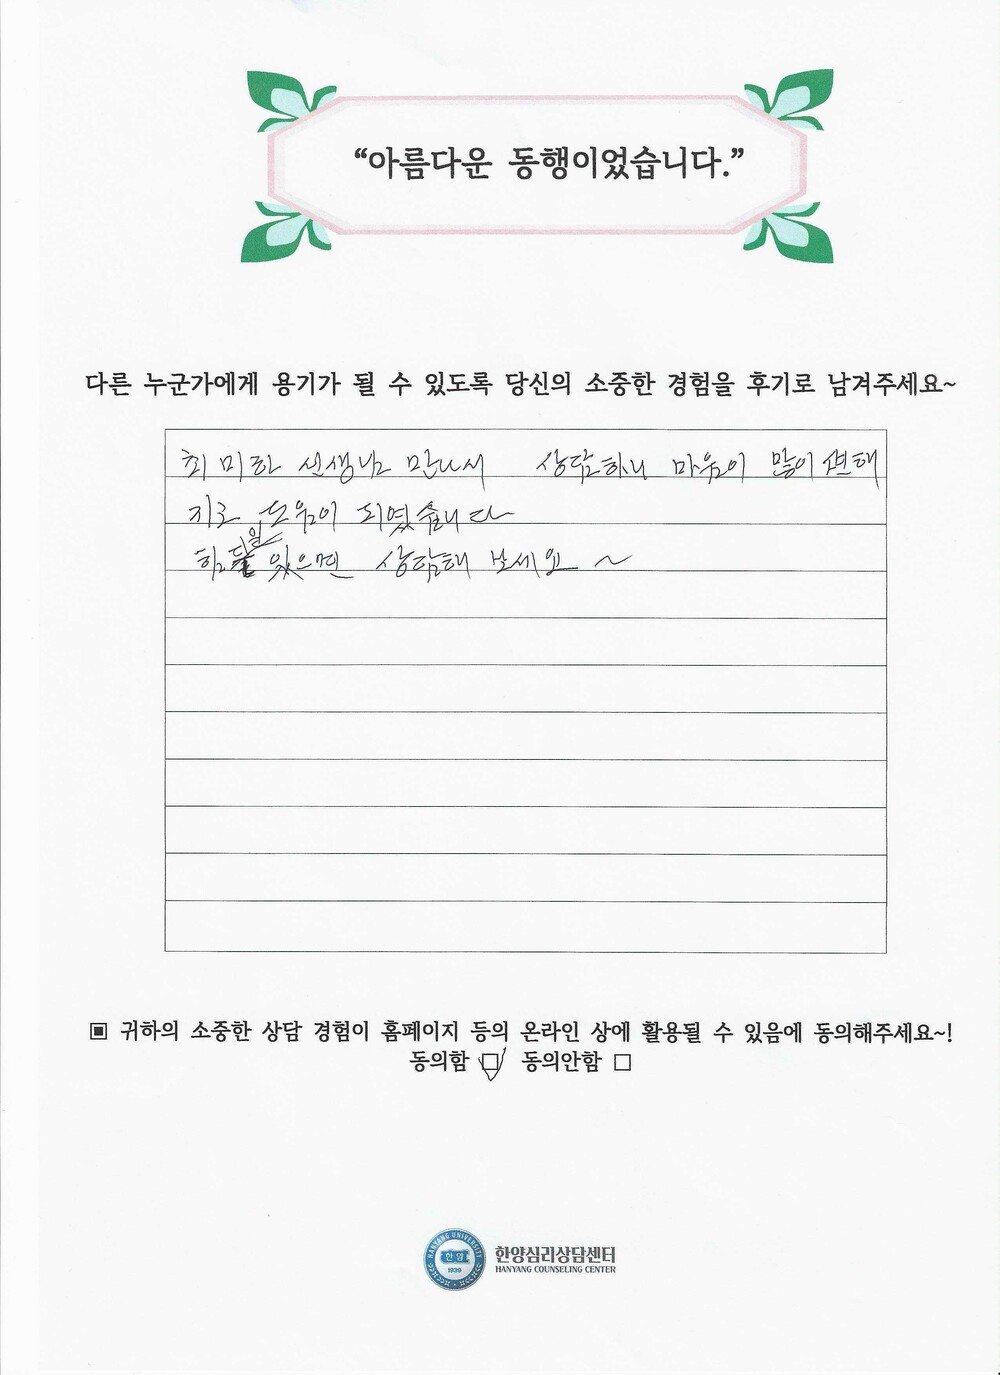 “아름다운 동행이었습니다.”
다른 누군가에게 용기가 될 수 있도록 당신의 소중한 경험을 후기로 남겨주세요~
최미라 선생님 만나서 상담하니 마음이 많이 편해
지고 도움이 되였습니다
힘든일 있으면 상담해 보세요 ~
▣ 귀하의 소중한 상담 경험이 홈페이지 등의 온라인 상에 활용될 수 있음에 동의해주세요~!
동의함 ☑ 동의안함 □
HANYANG UNIVERSITY
한양
1939
한양심리상담센터
HANYANG COUNSELING CENTER